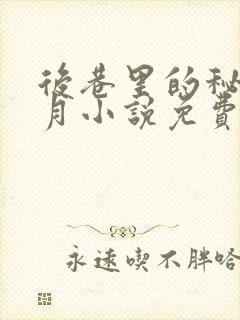 後巷里的秘
月小說免費
永遠喫不胖哈